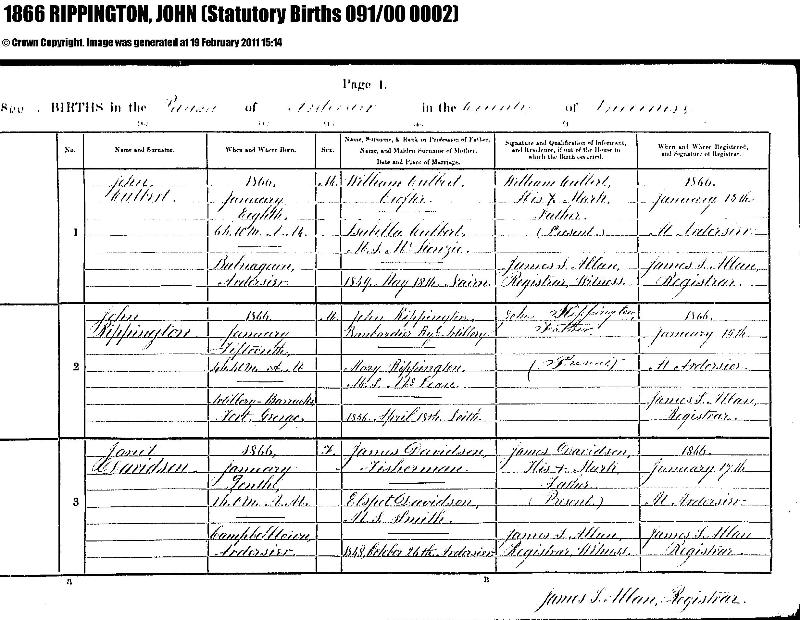 1866 RIPPINGTON, JOHN (Statutory Births 091/00 0002)
© Crown Copyright. Image was generated at 19 February 2011 15:14
Page 1.
BIRTHS in the Parish of Ardersier in the County of Inverness
No.
Name and Surname.
When and Where Born.
Sex.
Name, Surname, & Rank or Profession of Father.
Name, and Maiden Surname of Mother.
Date and Place of Marriage.
Signature and Qualification of Informant,
and Residence, if out of the House in
which the Birth occurred.
When and Where Registered,
and Signature of Registrar.
1
John
Culbert
1866.
January
Eighth.
6h. 0m. A.M.
Balnagaun,
Ardersier
M.
William Culbert,
Crofter
Isabella Culbert,
M.S. McKenzie.
May 18th. Nairn.
William Culbert,
His X Mark.
Father
(Present)
James S. Allan,
Registrar, Witness.
1866.
January 15th
At Ardersier
James S. Allan,
Registrar.
2
John
Rippington
1866.
January
Fifteenth,
A.M.
Artillery Barracks
Fort George
M.
John Rippington,
Bombardier Artillery
Mary Rippington
M.S. McLean.
1856. April 18th. Leith.
John Rippington,
Father
(Present)
1866.
January 15th
At Ardersier.
James S. Allan,
Registrar.
3
Janet
Davidson.
1866,
January
Tenth,
1h. 0m. A.M.
Campbelltown,
Ardersier
F.
James Davidson,
Fisherman.
Elspet Davidson,
M.S. Smith.
1848, October 26th. Ardersier
James Davidson,
His X Mark.
Father
(Present)
James S. Allan,
Registrar, Witness.
1866.
January 17th
At Ardersier
James S. Allan
Registrar.
A
B
James S. Allan, Registrar.